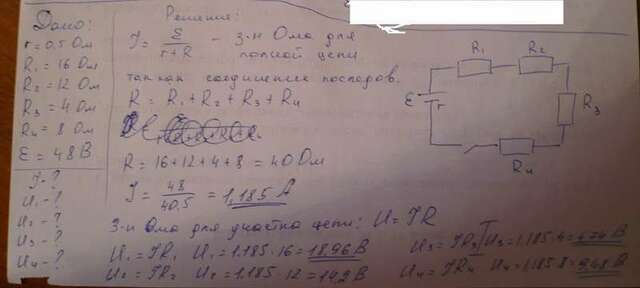 Дано:
r = 0.5 Ом
R₁ = 16 Ом
R₂ = 12 Ом
R₃ = 4 Ом
R₄ = 8 Ом
Ɛ = 48 В
I - ?
U₁ - ?
U₂ - ?
U₃ - ?
U₄ - ?
Решение:
I = Ɛ / r + R - з-н Ома для
полной цепи
так как соединение последов.
R = R₁ + R₂ + R₃ + R₄
R = 16 + 12 + 4 + 8 = 40 Ом
I = 48 / 40.5 = 1,185 А
З-н Ома для участка цепи: U = IR
U₁ = IR₁ U₁ = 1.185 · 16 = 18,96 В
U₂ = IR₂ U₂ = 1.185 · 12 = 14,2 В
U₃ = IR₃ U₃ = 1.185 · 4 = 4.74 В
U₄ = IR₄ U₄ = 1.185 · 8 = 9,48 В
R₁ R₂
Ɛ r R₃
R₄